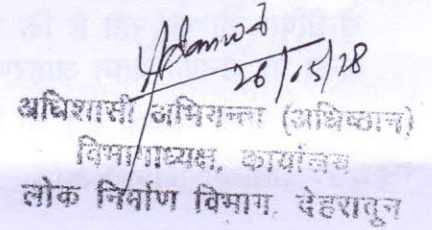 26/05/28
अधिशासी अभियन्ता (अधिष्ठान)
विभागाध्यक्ष, कार्यालय
लोक निर्माण विभाग, देहरादून